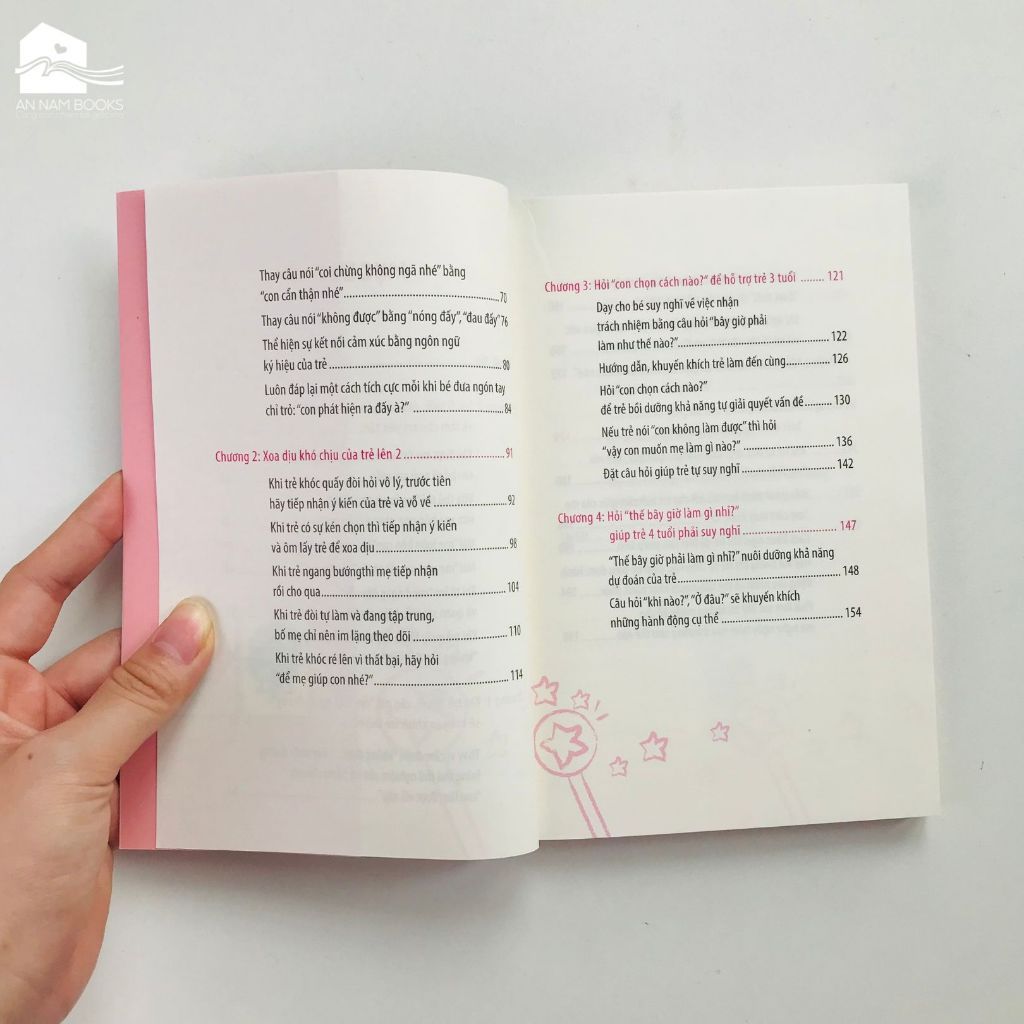 AN NAM BOOKS
Thay câu nói “coi chừng không ngã nhé” bằng
“con cẩn thận nhé”..........70
Thay câu nói “không được” bằng “nóng đấy”, “đau đấy” 76
Thể hiện sự kết nối cảm xúc bằng ngôn ngữ
ký hiệu của trẻ..........80
Luôn đáp lại một cách tích cực mỗi khi bé đưa ngón tay
chỉ trỏ: “con phát hiện ra đấy à?” ..........84
Chương 2: Xoa dịu khó chịu của trẻ lên 2..........91
Khi trẻ khóc quấy đòi hỏi vô lý, trước tiên
hãy tiếp nhận ý kiến của trẻ và vỗ về ..........92
Khi trẻ có sự kén chọn thì tiếp nhận ý kiến
và ôm lấy trẻ để xoa dịu..........98
Khi trẻ ngang bướngthì mẹ tiếp nhận
rồi cho qua..........104
Khi trẻ đòi tự làm và đang tập trung,
bố mẹ chỉ nên im lặng theo dõi ..........110
Khi trẻ khóc ré lên vì thất bại, hãy hỏi
“để mẹ giúp con nhé?”..........114
Chương 3: Hỏi “con chọn cách nào?” để hỗ trợ trẻ 3 tuổi ........ 121
Dạy cho bé suy nghĩ về việc nhận
trách nhiệm bằng câu hỏi “bây giờ phải
làm như thế nào?”.......... 122
Hướng dẫn, khuyến khích trẻ làm đến cùng.......... 126
Hỏi “con chọn cách nào?”
để trẻ bồi dưỡng khả năng tự giải quyết vấn đề.......... 130
Nếu trẻ nói “con không làm được” thì hỏi
“vậy con muốn mẹ làm gì nào?” .......... 136
Đặt câu hỏi giúp trẻ tự suy nghĩ.......... 142
Chương 4: Hỏi “thế bây giờ làm gì nhỉ?”
giúp trẻ 4 tuổi phải suy nghĩ.......... 147
“Thế bây giờ phải làm gì nhỉ?” nuôi dưỡng khả năng
dự đoán của trẻ.......... 148
Câu hỏi “khi nào?”, “Ở đâu?” sẽ khuyến khích
những hành động cụ thể .......... 154